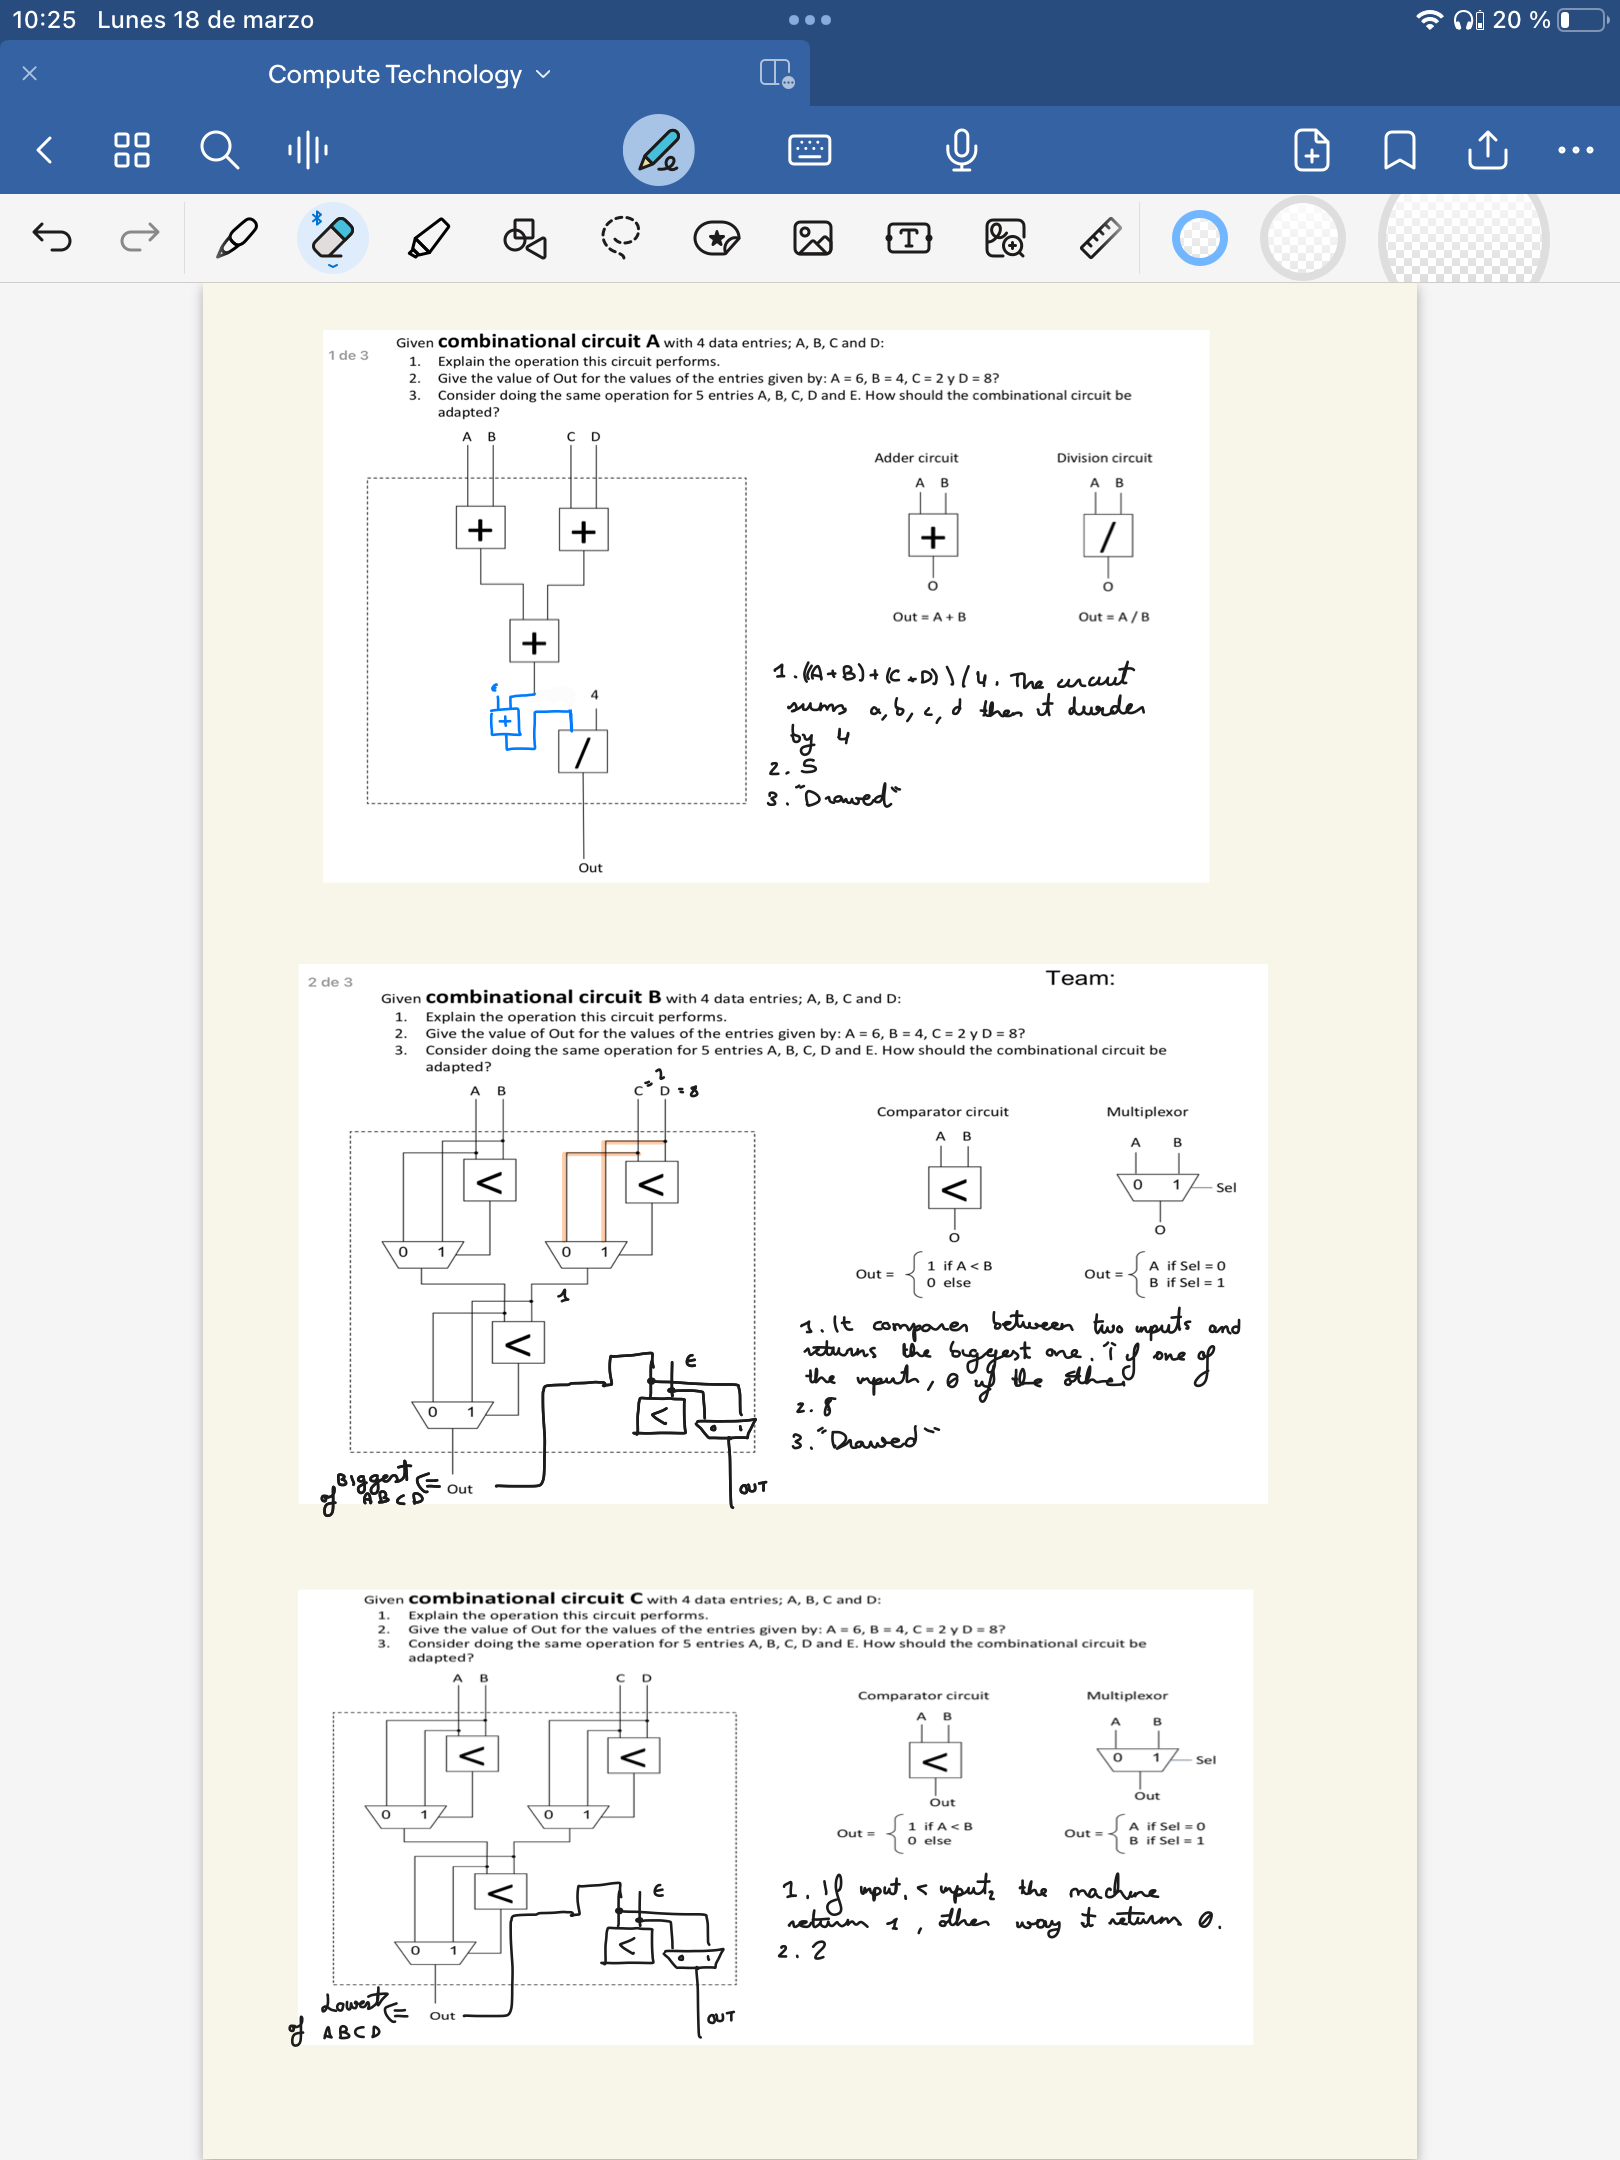 10:25 Lunes 18 de marzo
20 %
Compute Technology
1 de 3
Given combinational circuit A with 4 data entries; A, B, C and D:
1. Explain the operation this circuit performs.
2. Give the value of Out for the values of the entries given by: A = 6, B = 4, C = 2 y D = 8?
3. Consider doing the same operation for 5 entries A, B, C, D and E. How should the combinational circuit be
adapted?
A B C D
Adder circuit Division circuit
A B A B
+ + + /
O O
Out = A + B Out = A / B
+
1. ((A+B)+(C+D))/4. The circuit
sums a, b, c, d then it
by 4
2. 5
3. "Drawed"
4
+
/
Out
2 de 3
Team:
Given combinational circuit B with 4 data entries; A, B, C and D:
1. Explain the operation this circuit performs.
2. Give the value of Out for the values of the entries given by: A = 6, B = 4, C = 2 y D = 8?
3. Consider doing the same operation for 5 entries A, B, C, D and E. How should the combinational circuit be
adapted?
A B C = 2 D = 8
Comparator circuit Multiplexor
A B A B
< < < 0 1 Sel
O O
0 1 0 1
Out = { 1 if A < B
0 else
Out = { A if Sel = 0
B if Sel = 1
1
<
1. It compares between two inputs and
returns the biggest one. 1 if one of
the inputs, 0 if the other
2. 8
3. "Drawed"
E
0 1 < 0 1
Biggest
of A B C D <= Out
OUT
Given combinational circuit C with 4 data entries; A, B, C and D:
1. Explain the operation this circuit performs.
2. Give the value of Out for the values of the entries given by: A = 6, B = 4, C = 2 y D = 8?
3. Consider doing the same operation for 5 entries A, B, C, D and E. How should the combinational circuit be
adapted?
A B C D
Comparator circuit Multiplexor
A B A B
< < < 0 1 Sel
Out Out
0 1 0 1
Out = { 1 if A < B
0 else
Out = { A if Sel = 0
B if Sel = 1
<
1. If input1 < input2 the machine
return 1, other way it returns 0.
2. 2
E
0 1 < 0 1
Lowest
of A B C D <= Out
OUT